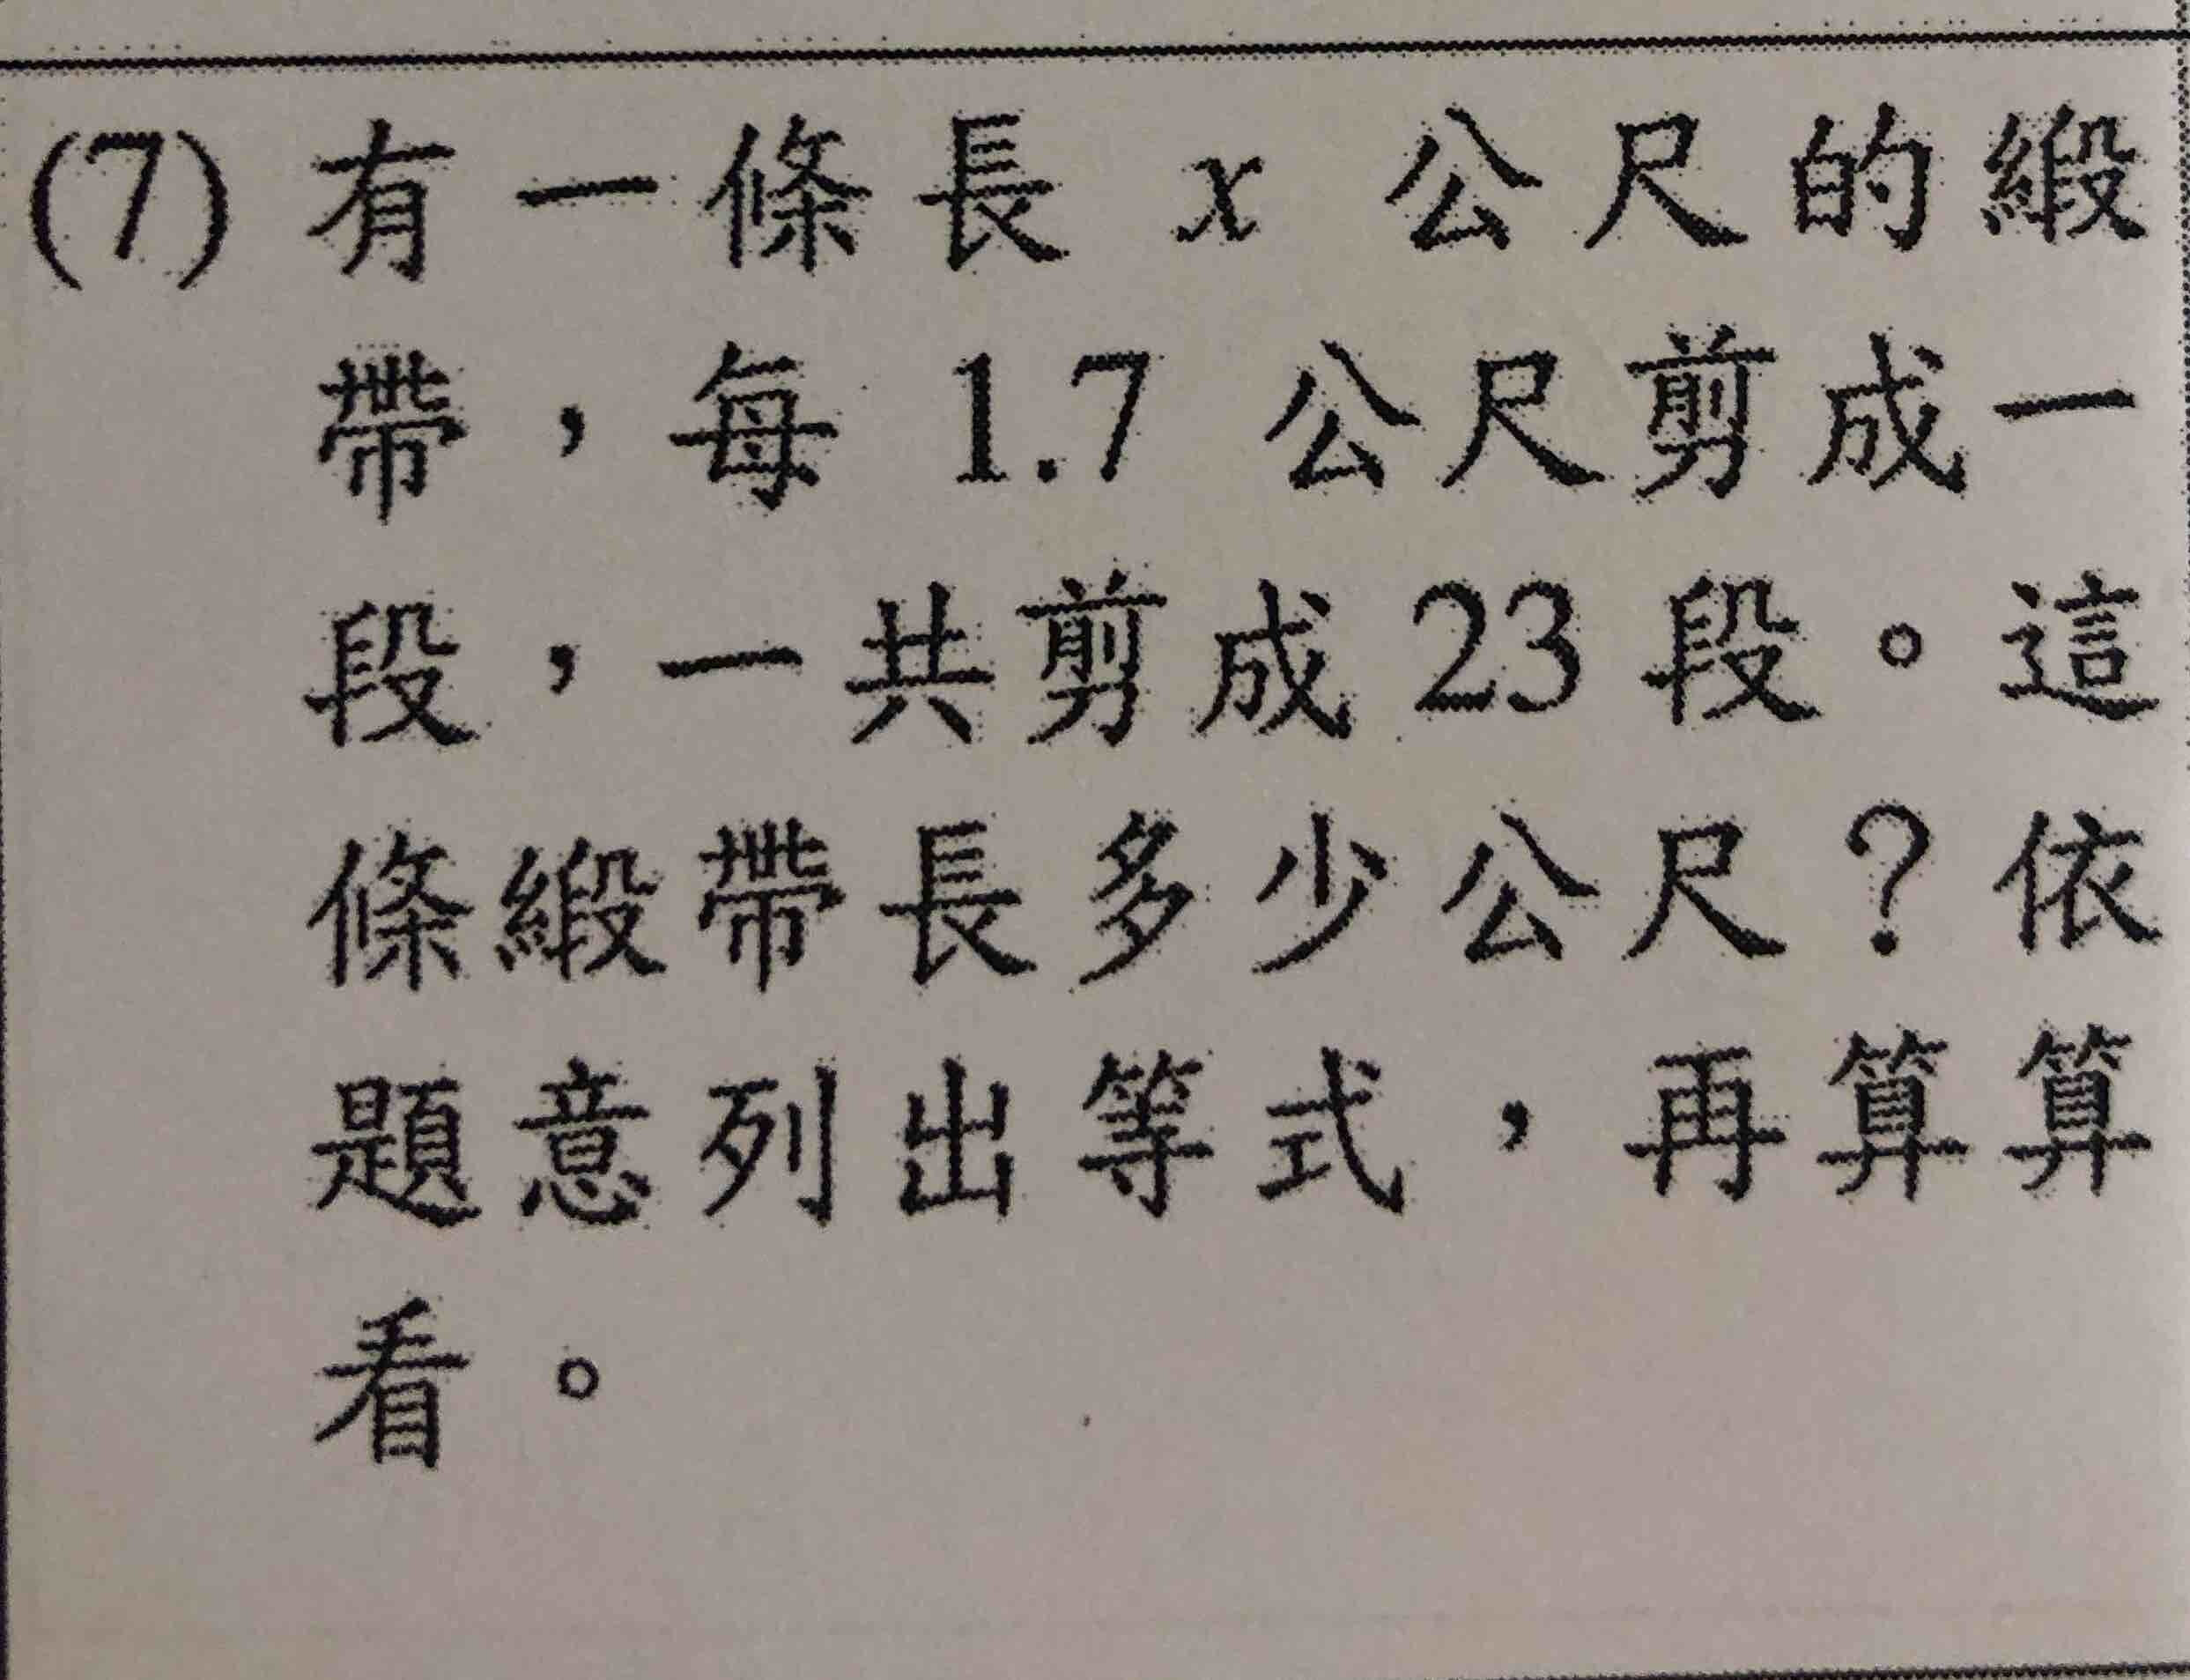 (7) 有一條長 x 公尺的緞
帶，每 1.7 公尺剪成一
段，一共剪成 23 段。這
條緞帶長多少公尺？依
題意列出等式，再算算
看。